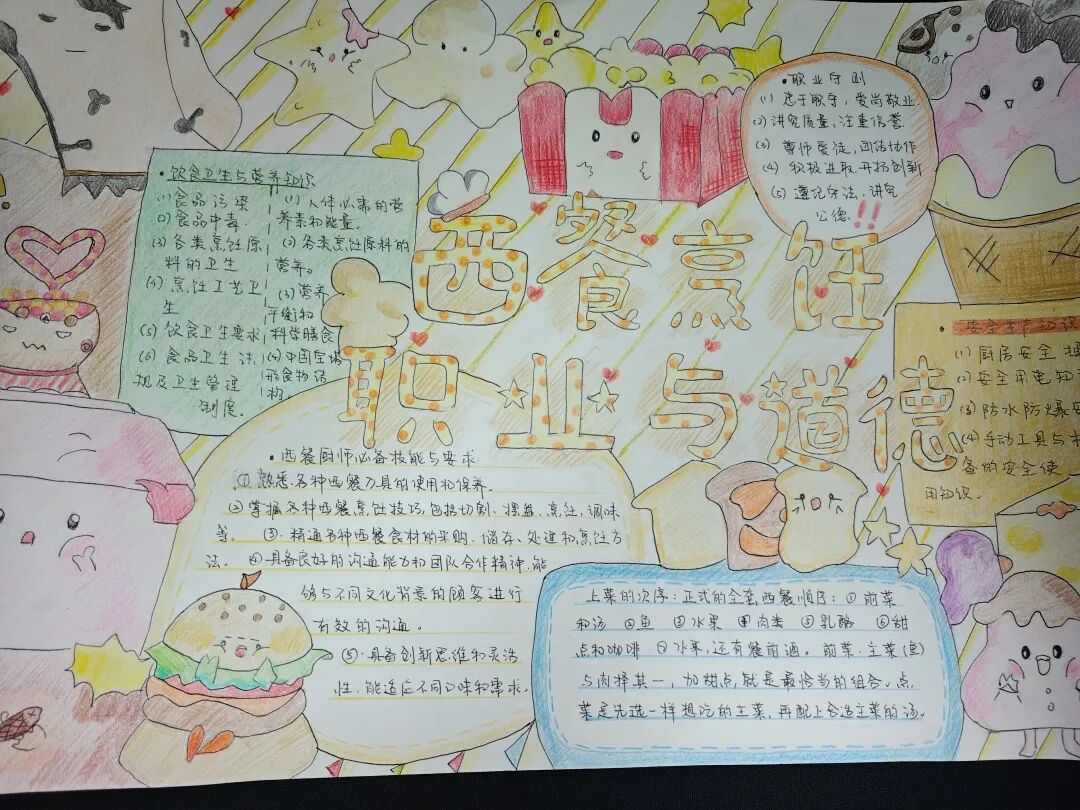 西餐烹饪
职业与道德
•饮食卫生与营养知识
(1)食品污染
(2)食品中毒.
(3)各类烹饪原
料的卫生
(4)烹饪工艺卫
生
(5)饮食卫生要求
(6)食品卫生法
规及卫生管理
制度。
(1)人体必需的营
养素和能量。
(2)各类烹饪原料的
营养。
(3)营养
平衡和
科学膳食
(4)中国宝塔
形食物结
构.
•职业守则
(1)忠于职守,爱岗敬业.
(2)讲究质量,注重信誉.
(3)尊师爱徒,团结协作
(4)积极进取,开拓创新
(5)遵纪守法,讲究
公德!!
•安全生产知识
(1)厨房安全
(2)安全用电知
(3)防水防爆安
(4)手动工具与
备的安全使
用知识。
•西餐厨师必备技能与要求
①熟悉各种西餐刀具的使用和保养。
②掌握各种西餐烹饪技巧,包括切割、摆盘、烹饪、调味
等。③.精通各种西餐食材的采购、储存、处理和烹饪方
法。④具备良好的沟通能力和团队合作精神,能
够与不同文化背景的顾客进行
有效的沟通。
⑤.具备创新思维和灵活
性,能适应不同口味和需求。
上菜的次序:正式的全套西餐顺序:①前菜
和汤 ②鱼 ③水果 ④肉类 ⑤乳酪 ⑥甜
点和咖啡 ⑦水果,还有餐前酒。前菜、主菜(鱼)
与肉择其一,加甜点,就是最恰当的组合。点
菜是先选一样想吃的主菜,再配上合适主菜的汤。